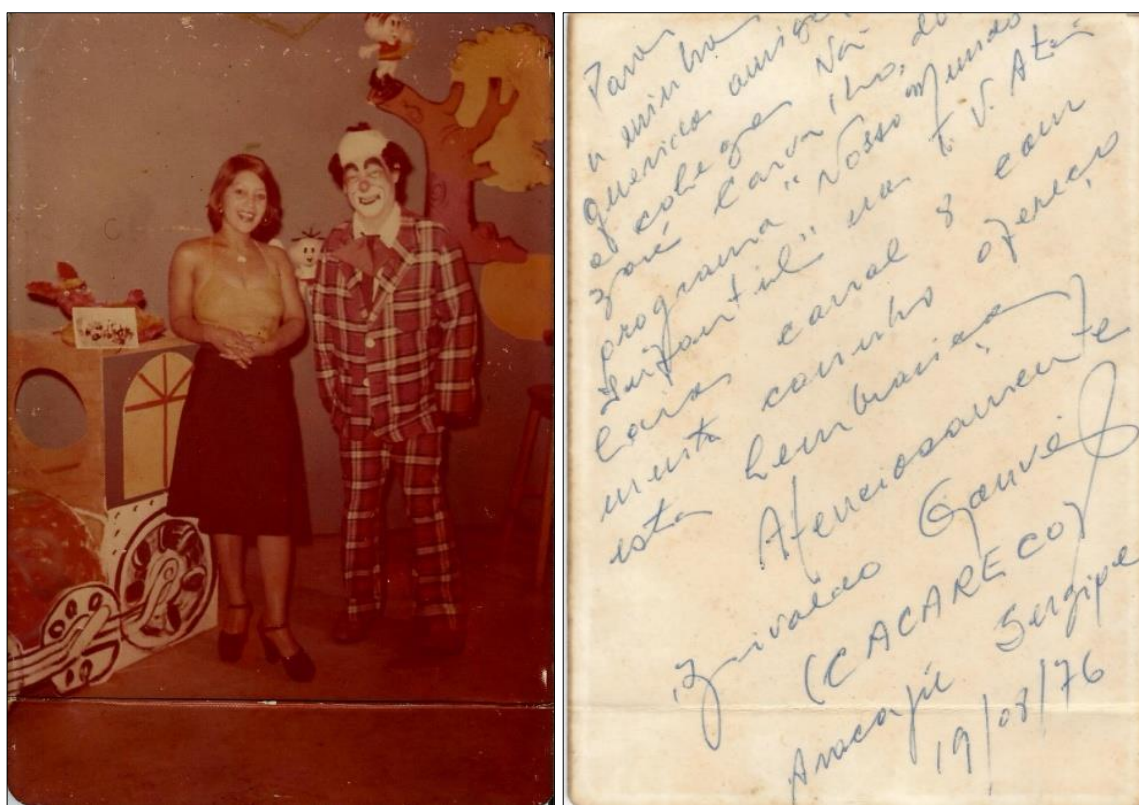 Para
a minha
querida amiga
e colega Na
zaré Carvalho, do
programa "Nosso Mundo
Infantil" na T.V. Ata
laia canal 8 com
muito carinho ofereço
esta lembrança
Atenciosamente
(CACARECO)
Aracajú Sergipe
19/08/76